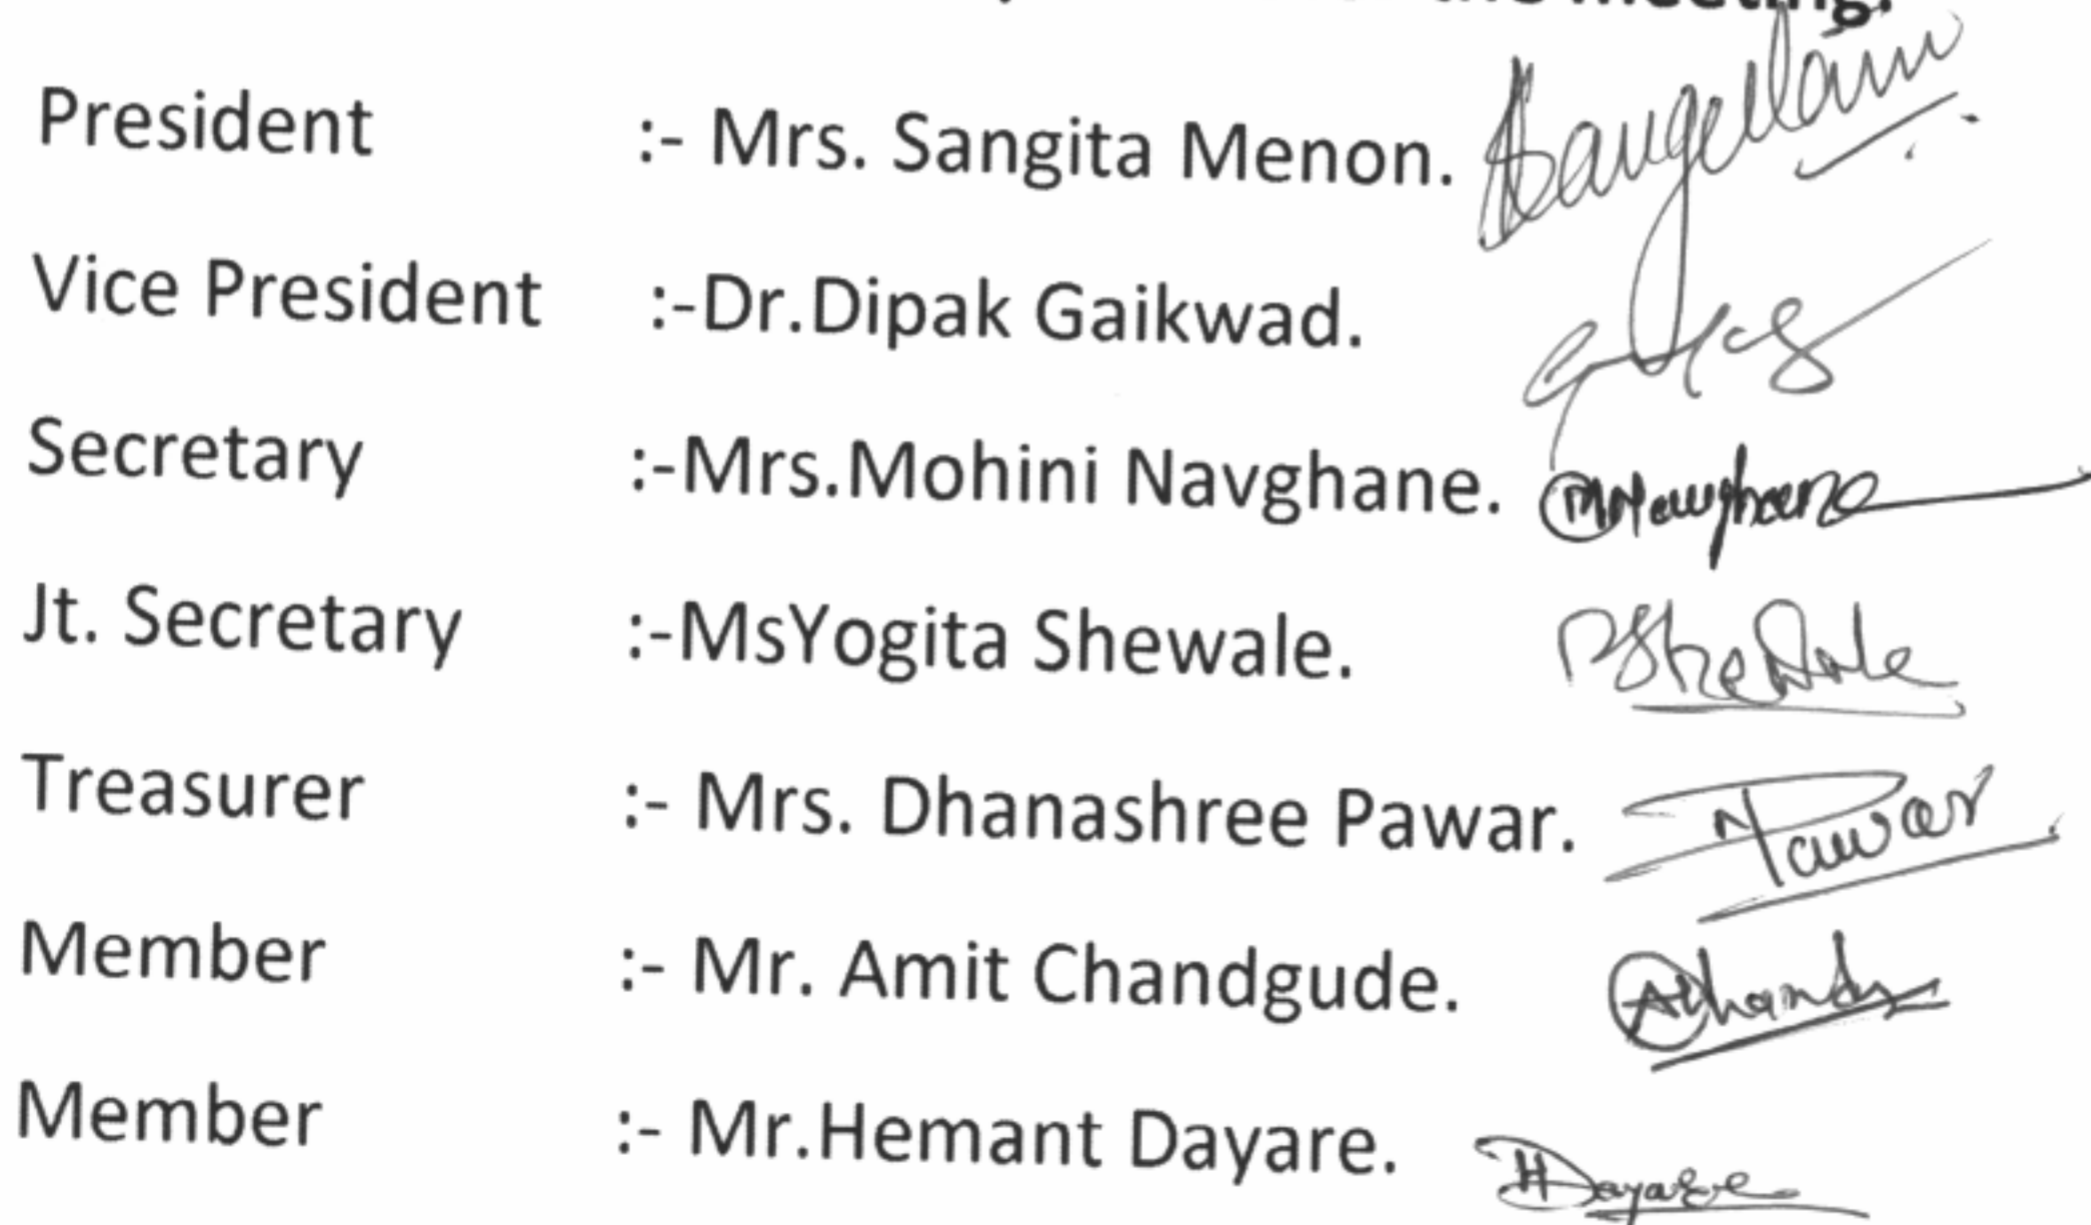 the Meeting.
President :- Mrs. Sangita Menon.
Vice President :-Dr.Dipak Gaikwad.
Secretary :-Mrs.Mohini Navghane. MNavghane
Jt. Secretary :-MsYogita Shewale. Shewale
Treasurer :- Mrs. Dhanashree Pawar. Pawar
Member :- Mr. Amit Chandgude.
Member :- Mr.Hemant Dayare. HDayare